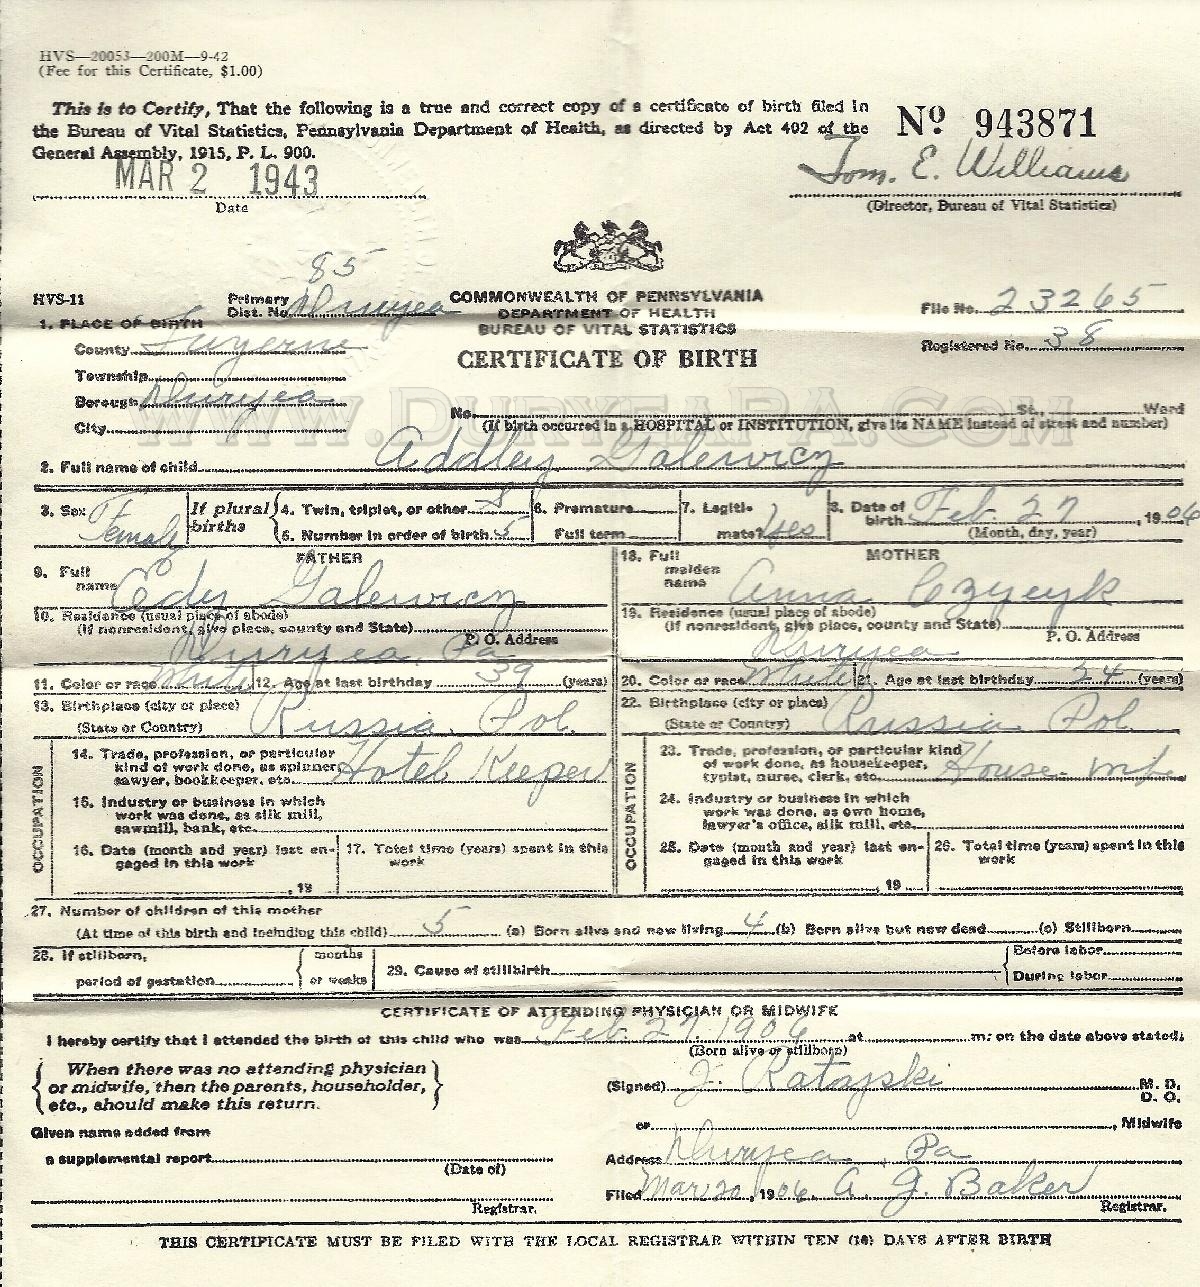 HVS—20053—200M—9-42
(Fee for this Certificate, $1.00)
This is to Certify, That the following is a true and correct copy of a certificate of birth filed in
the Bureau of Vital Statistics, Pennsylvania Department of Health, as directed by Act 402 of the
General Assembly, 1915, P. L. 900.
No 943871
MAR 2 1943
Date
Tom. E. Williams
(Director, Bureau of Vital Statistics)
85
HVS-11
Primary
Dist. No. Duryea
COMMONWEALTH OF PENNSYLVANIA
DEPARTMENT OF HEALTH
BUREAU OF VITAL STATISTICS
CERTIFICATE OF BIRTH
File No. 23265
Registered No. 38
1. PLACE OF BIRTH
County Luzerne
Township
Borough Duryea
City
WWW.DURYEAPA.COM
No. St., Ward
(If birth occurred in a HOSPITAL or INSTITUTION, give its NAME instead of street and number)
2. Full name of child Addley Galewicz
3. Sex Female
If plural births
4. Twin, triplet, or other
5. Number in order of birth 5
6. Premature
Full term
7. Legiti-
mate? Yes
8. Date of
birth Feb. 27, 1906
(Month, day, year)
FATHER
9. Full
name Edy Galewicz
10. Residence (usual place of abode)
(If nonresident, give place, county and State)
P. O. Address
Duryea Pa
11. Color or race White 12. Age at last birthday 39 (years)
13. Birthplace (city or place)
(State or Country) Russia Pol.
OCCUPATION
14. Trade, profession, or particular
kind of work done, as spinner,
sawyer, bookkeeper, etc. Hotel Keeper
15. Industry or business in which
work was done, as silk mill,
sawmill, bank, etc.
16. Date (month and year) last en-
gaged in this work
, 19
17. Total time (years) spent in this
work
MOTHER
18. Full
maiden
name Anna Czycyk
19. Residence (usual place of abode)
(If nonresident, give place, county and State)
P. O. Address
Duryea
20. Color or race White 21. Age at last birthday 24 (years)
22. Birthplace (city or place)
(State or Country) Russia Pol.
OCCUPATION
23. Trade, profession, or particular kind
of work done, as housekeeper,
typist, nurse, clerk, etc. House
24. Industry or business in which
work was done, as own home,
lawyer's office, silk mill, etc.
25. Date (month and year) last en-
gaged in this work
, 19
26. Total time (years) spent in this
work
27. Number of children of this mother
(At time of this birth and including this child) 5 (a) Born alive and now living 4 (b) Born alive but now dead (c) Stillborn
28. If stillborn,
period of gestation
months
or weeks
29. Cause of stillbirth
Before labor
During labor
CERTIFICATE OF ATTENDING PHYSICIAN OR MIDWIFE
I hereby certify that I attended the birth of this child who was Feb. 27, 1906 at m. on the date above stated.
(Born alive or stillborn)
When there was no attending physician
or midwife, then the parents, householder,
etc., should make this return.
(Signed) J. Ratajski M. D.
D. O.
or , Midwife
Given name added from
a supplemental report
(Date of)
Registrar.
Address Duryea, Pa
Filed Mar. 20, 1906. A. J. Baker
Registrar.
THIS CERTIFICATE MUST BE FILED WITH THE LOCAL REGISTRAR WITHIN TEN (10) DAYS AFTER BIRTH